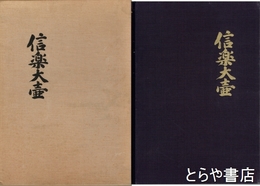 信楽大壷
信楽大壷
とらや書店